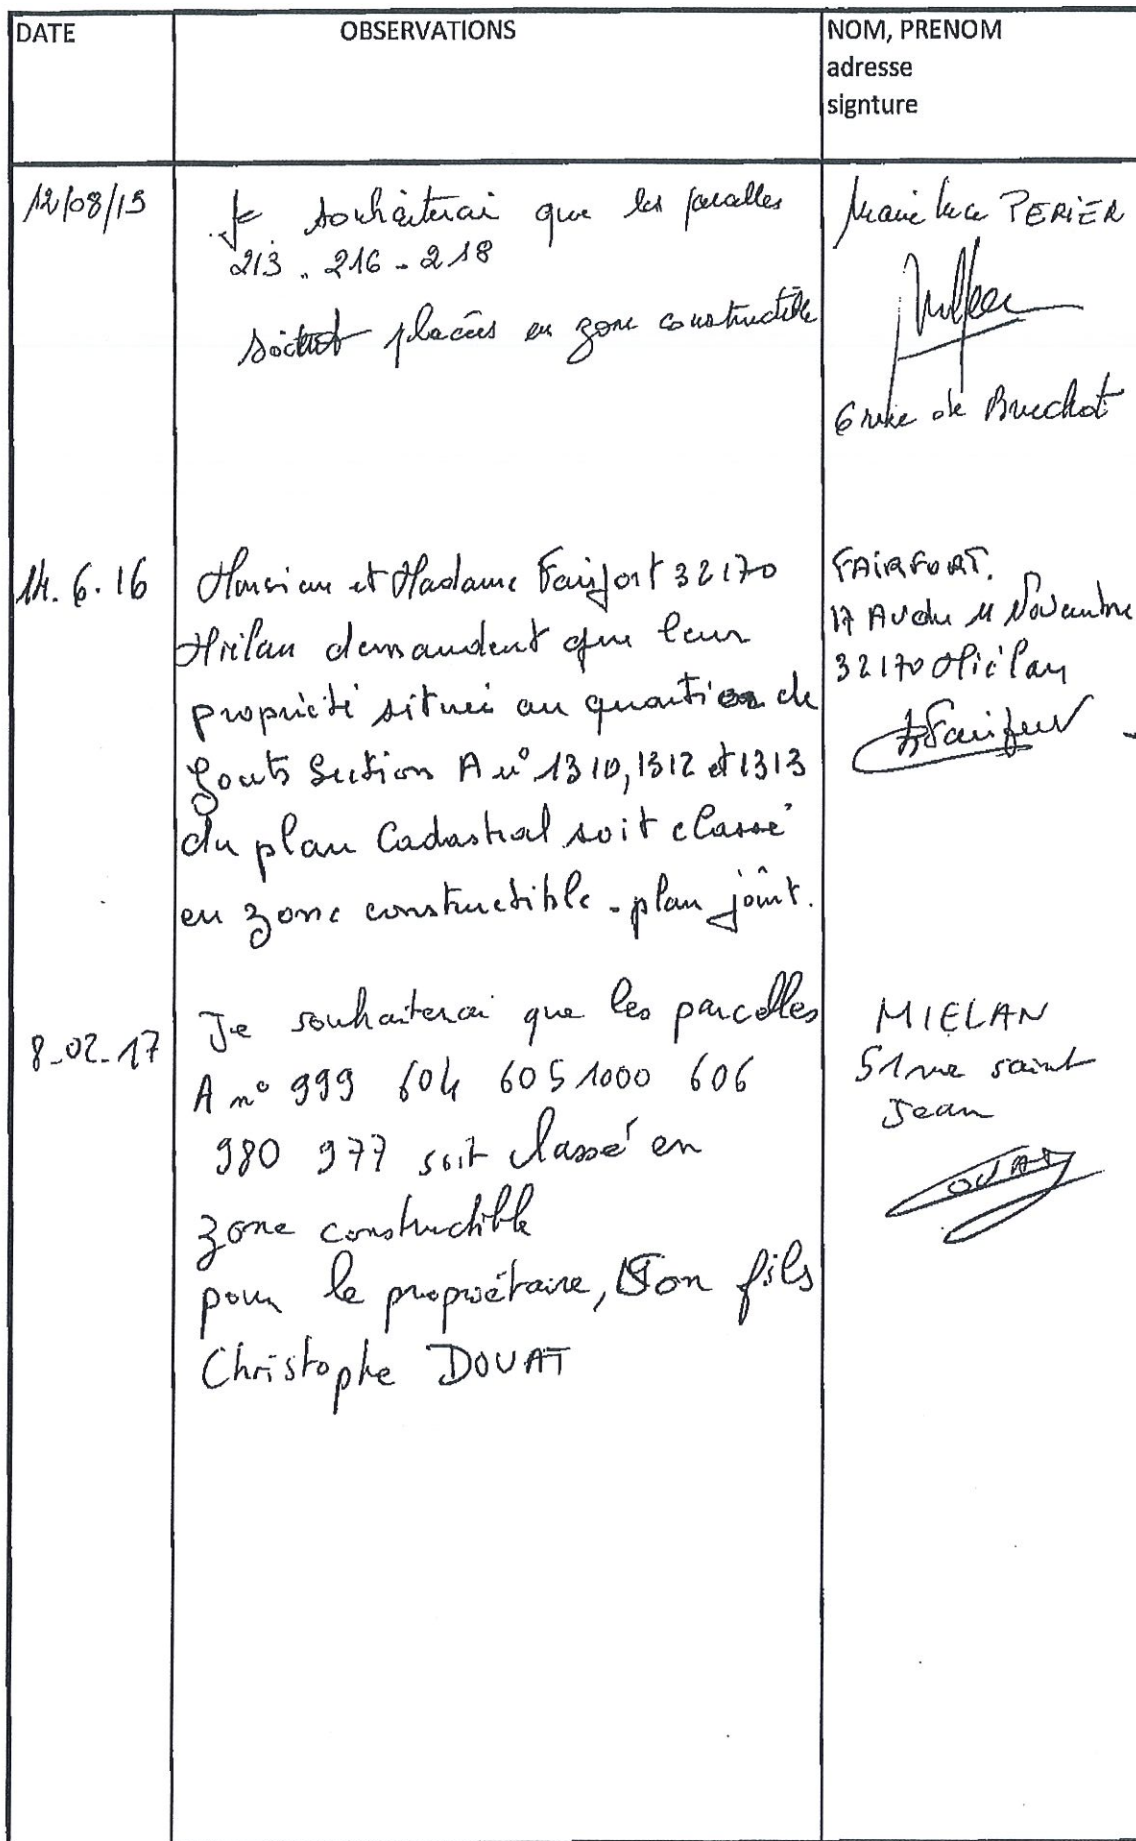 DATE
OBSERVATIONS
NOM, PRENOM
adresse
signture
12/08/15
Je souhaiterai que les parcelles
213 - 216 - 218
soient placées en zone constructible
Marie Luce PERIER
6 rue de Bruchot
14.6.16
Monsieur et Madame Fairfort 32170
Miélan demandent que leur
propriété située au quartier de
Gouts Section A n° 1310, 1312 et 1313
du plan Cadastral soit classé
en zone constructible - plan joint.
FAIRFORT.
17 Av du 11 Novembre
32170 Miélan
8-02-17
Je souhaiterai que les parcelles
A n° 999 604 605 1000 606
980 977 soit classé en
zone constructible
pour le propriétaire, Son fils
Christophe DOUAT
MIELAN
51 rue saint
Jean